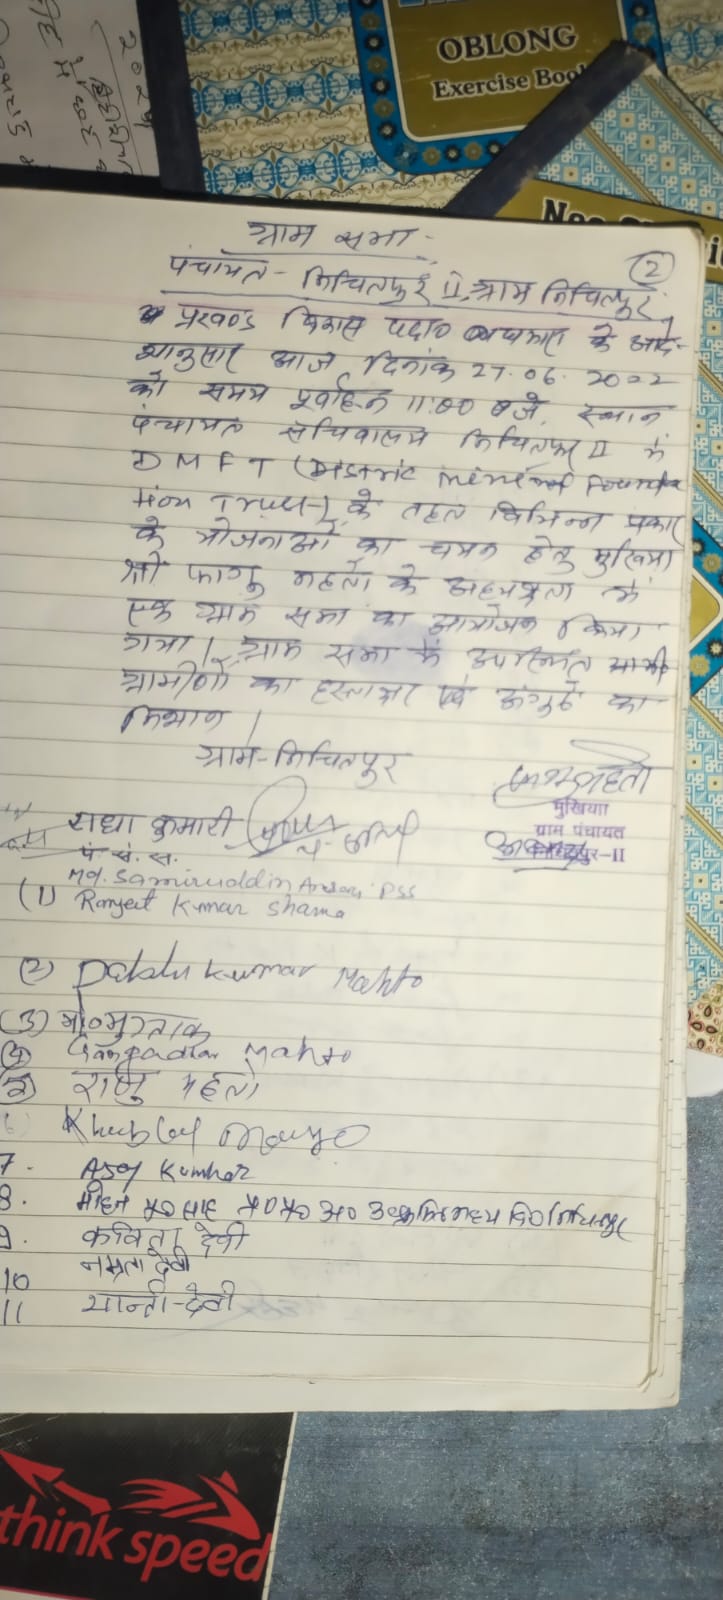 OBLONG
Exercise Book
ग्राम सभा -
2
पंचायत - निचितपुर II, ग्राम निचितपुर
प्रखण्ड विकास पदा० के आदे-
शानुसार आज दिनांक 27.06.2022
को समय पूर्वाहन 11:00 बजे, स्थान
पंचायत सचिवालय निचितपुर II में
DMFT (District mineral Founda
tion Trust) के तहत विभिन्न प्रकार
के योजनाओं का चयन हेतु मुखिया
श्री फागु महतो के अध्यक्षता में
एक ग्राम सभा का आयोजन किया
गया। ग्राम सभा में उपस्थित सभी
ग्रामीणों का हस्ताक्षर एवं अंगुठे का
निशान।
ग्राम-निचितपुर
राधा कुमारी
मुखिया
ग्राम पंचायत
पुर-II
पं. सं. स.
Md. Samiruddin Ansari PSS
(1) Ranjeet Kumar Sharma
(2) Kumar Mahto
(3) मो० मुस्ताक
(4) Gangadhar Mahto
(5) राजु महतो
6)
7. Ajay Kumhar
8. मोहन प्र० साह प्र० प्र० अ०
9. कविता देवी
10 नम्रता देवी
11 शान्ती-देवी
think speed